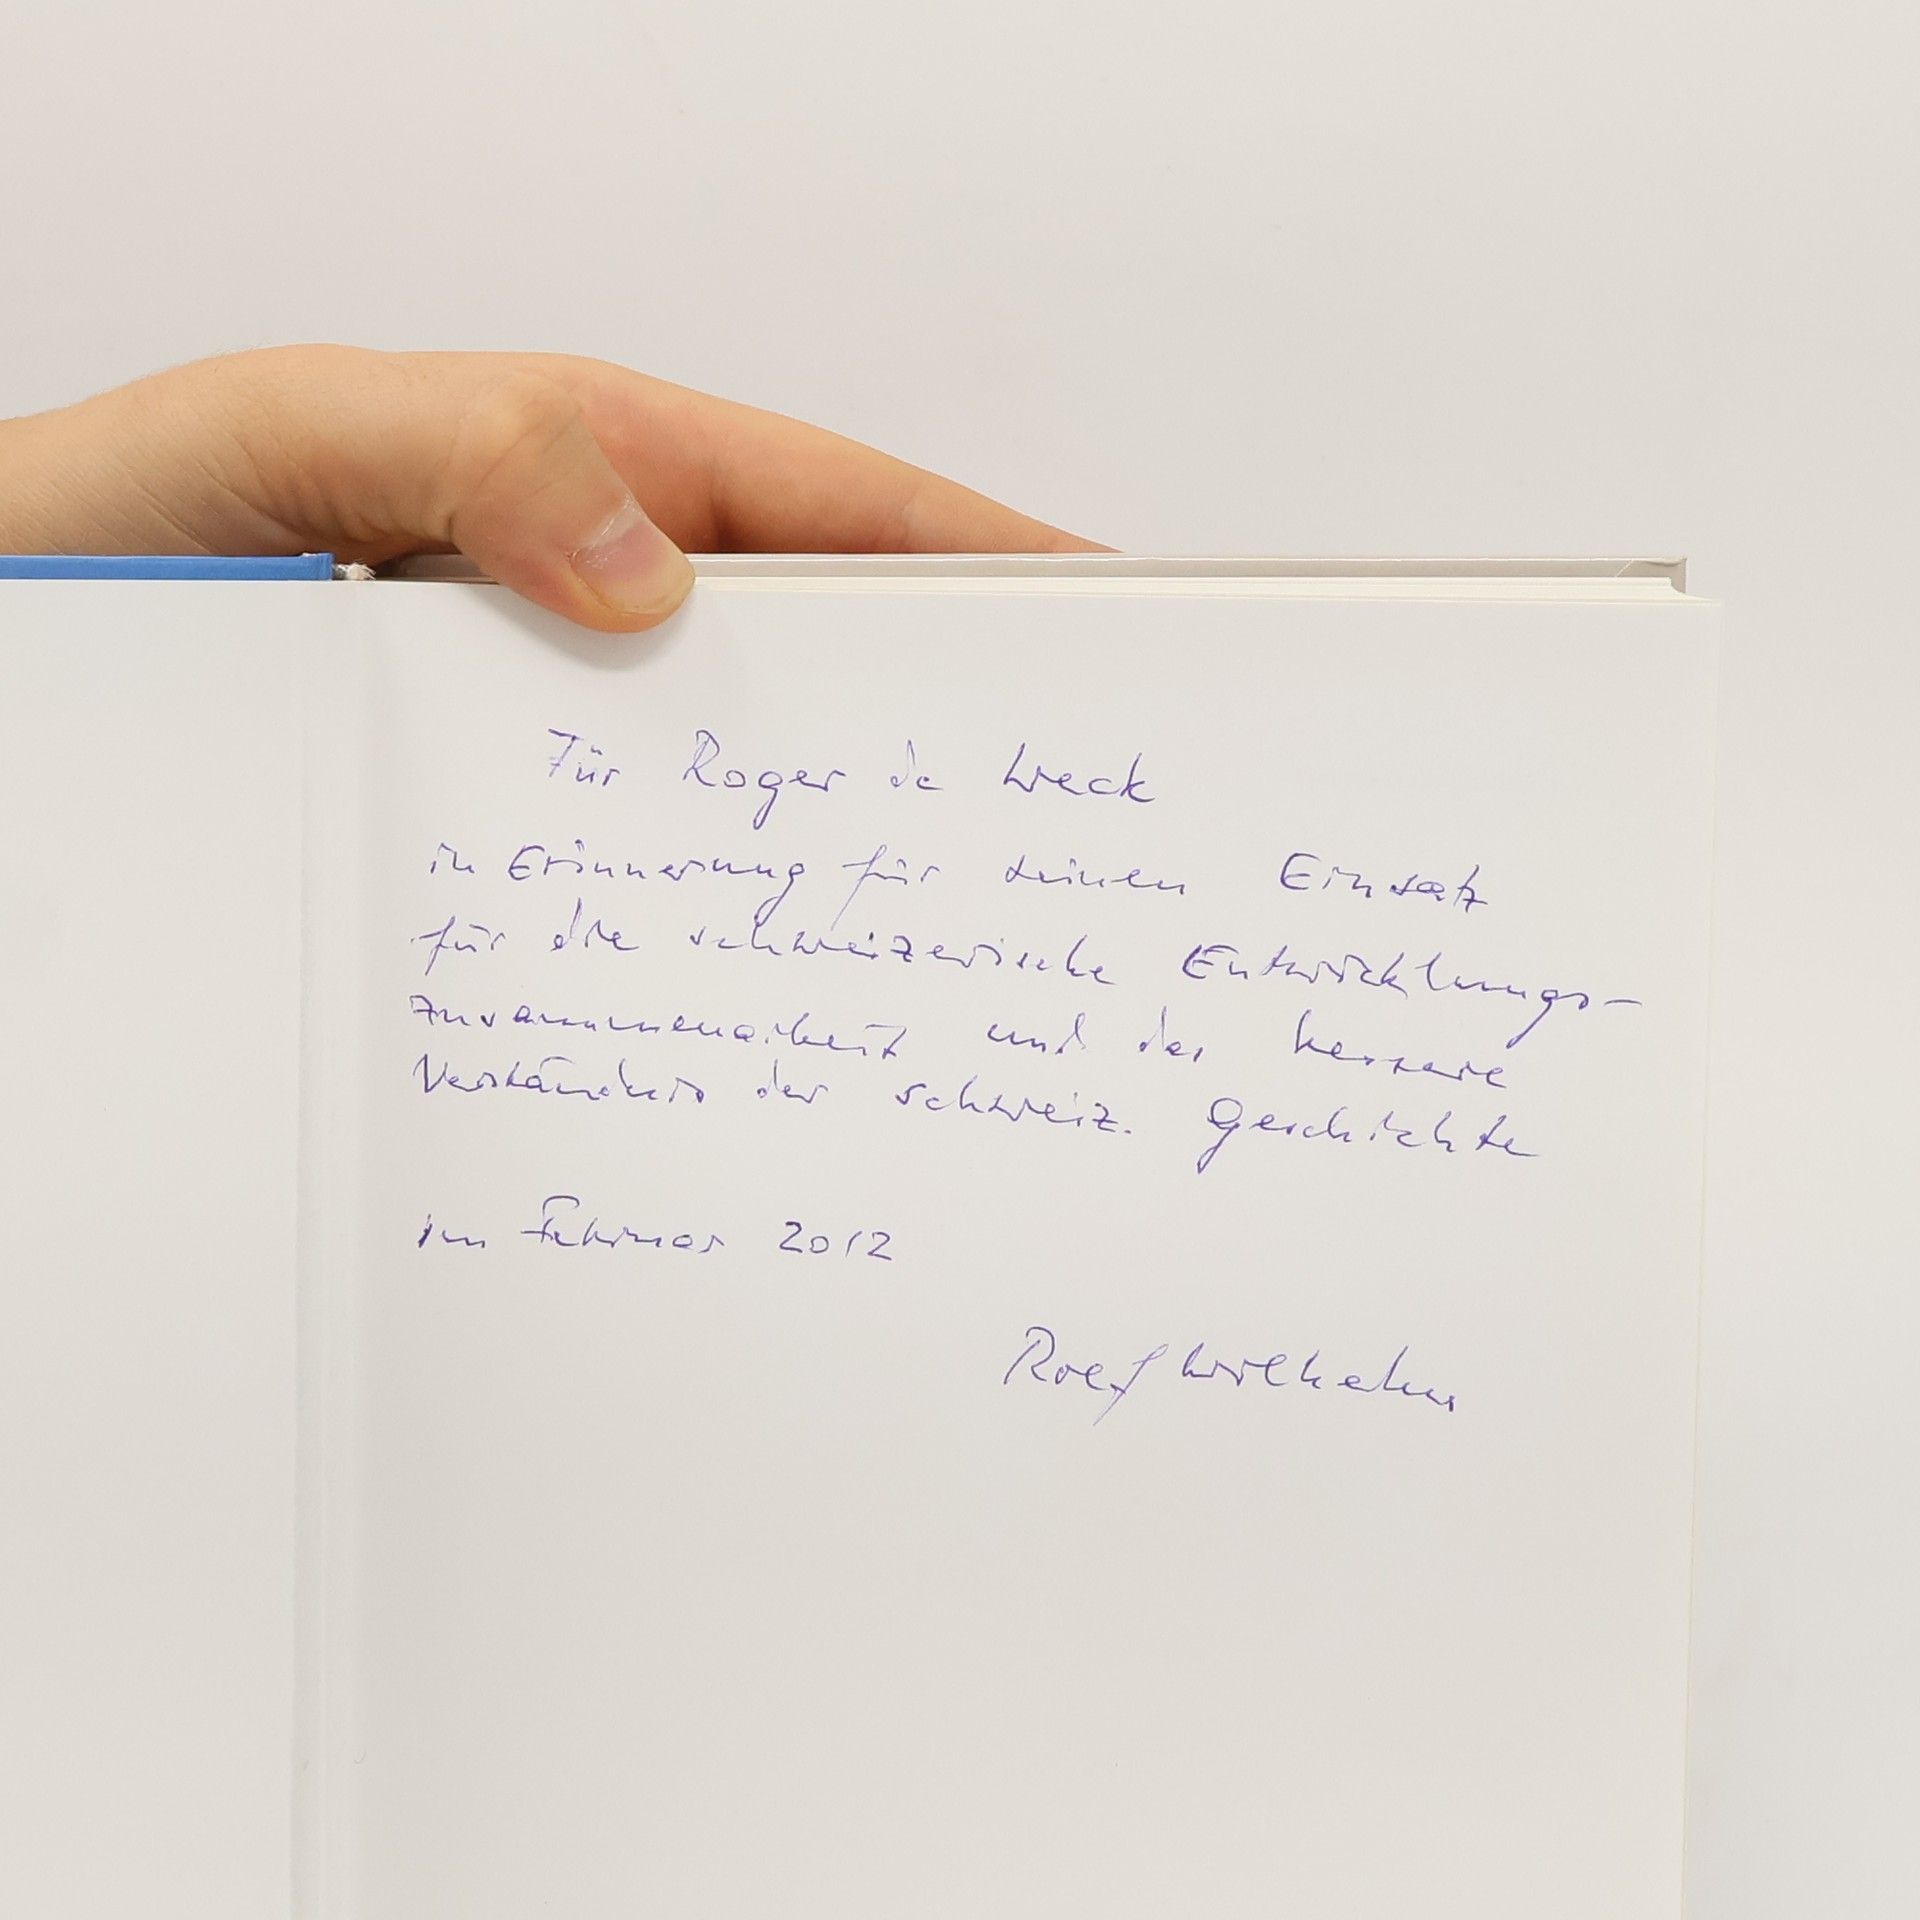 Für Roger de Weck
in Erinnerung für seinen Einsatz
für die schweizerische Entwicklungs-
zusammenarbeit und das bessere
Verständnis der schweiz. Geschichte
im Februar 2012
Rolf Wilhelm